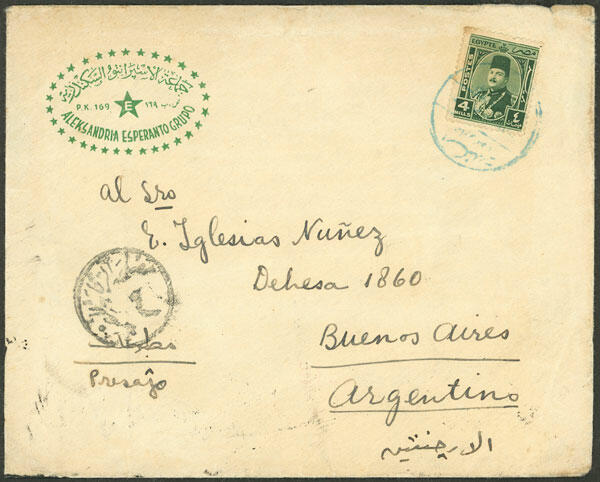 جماعة الاسبرانتو السكندرية
P.K. 169 E ص.ب ١٦٩
ALEKSANDRIA ESPERANTO GRUPO
EGYPTE مصر
POSTES
4 MILLS ٤
al Sro
E. Iglesias Nuñez
Dehesa 1860
Buenos Aires
Argentino
الارجنتين
مطبوعات
Presaĵo